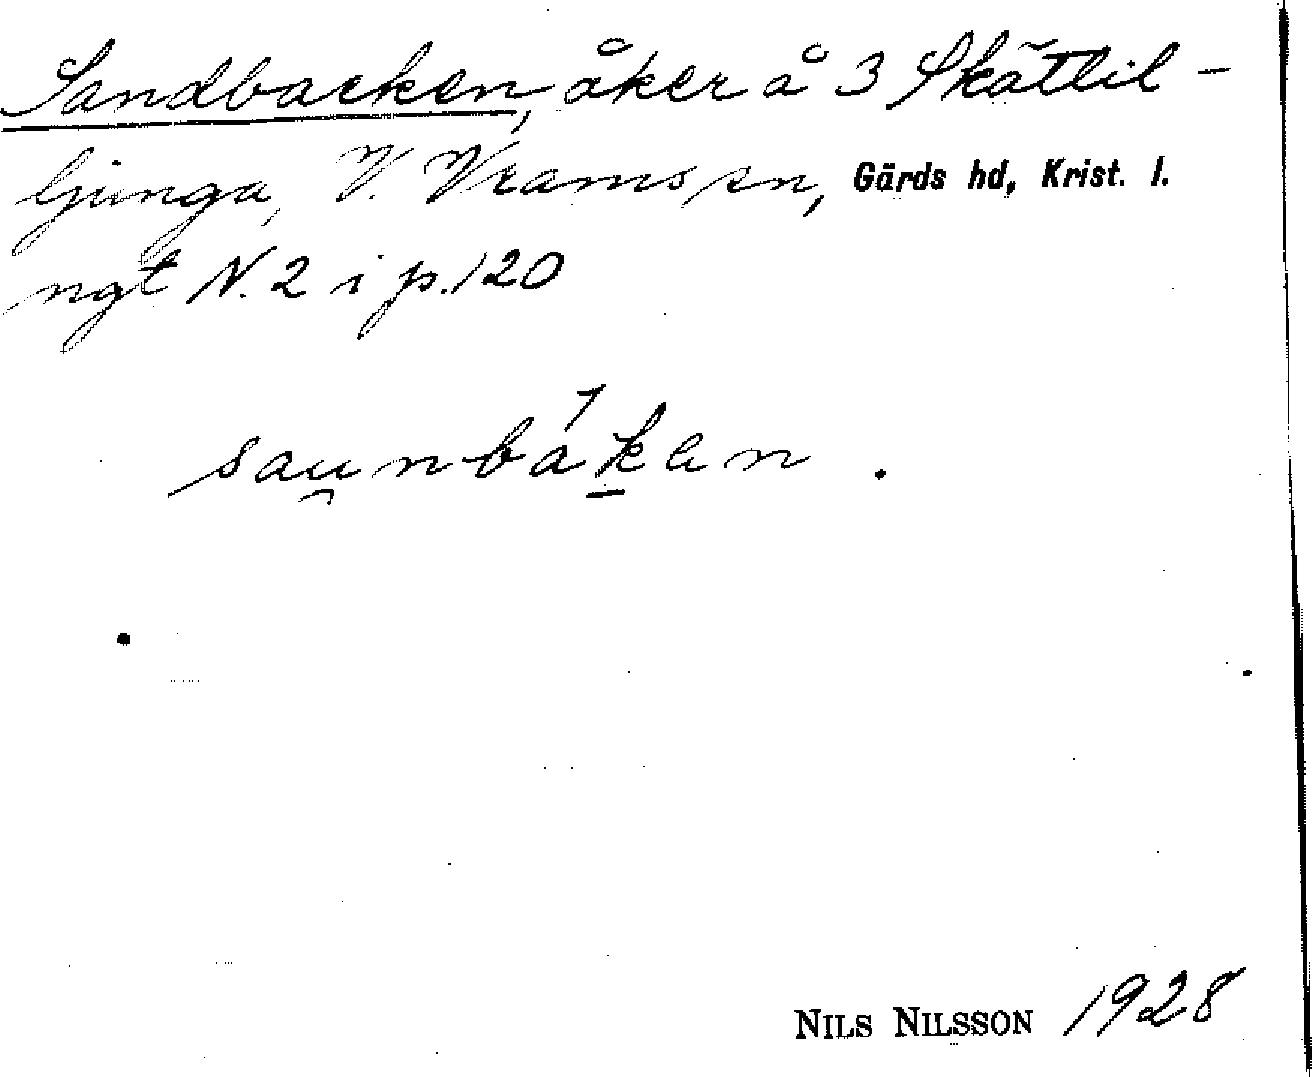 Sandbacken, åker å 3 Skättil-
ljunga, V. Vrams sn, Gärds hd, Krist. l.
ngt N. 2 i p. 120
saunbákan.
NILS NILSSON 1928